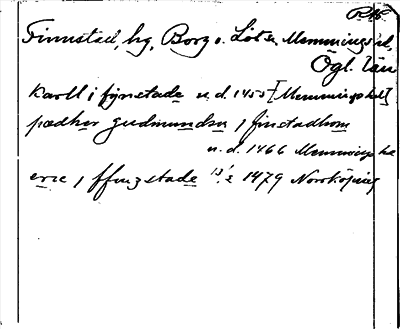 RAP.
Finnsted, hg, Borg o. Löt sn, Memmings hd,
Ögl. län
karll i fijnstade u.d. 1453 [Memmings hd]
pædher gudmundsn i finstadhom
u.d. 1466 Memmings hd
eric i ffinzstade 13/2 1479 Norrköping